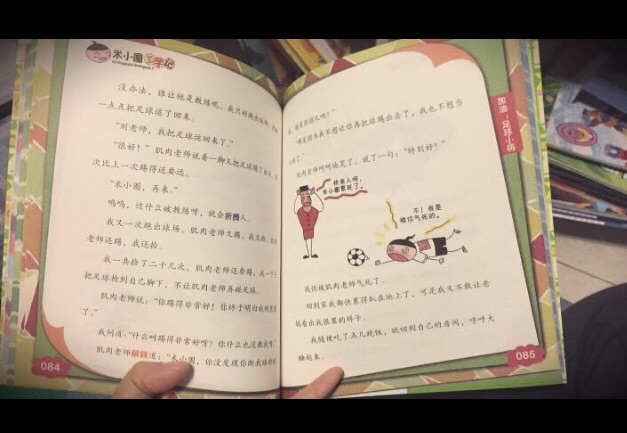 米小圈上学记
没办法，谁让他是教练呢。我只好跑出球场，
一点点把足球运了回来。
“刘老师，我把足球运回来了。”
“很好！”肌肉老师说着一脚又把足球踢了出去，
次比上一次踢得还要远。
“米小圈，再来。”
呜呜，这什么破教练呀，就会折腾人。
我又一次跑出球场。肌肉老师又踢，我又捡，
老师还踢，我还捡。
我一共捡了二十几次，肌肉老师还要踢，我一
把足球抢到自己脚下，不让肌肉老师再碰足球。
肌肉老师说：“你踢得非常好！你终于明白我的
了。”
我问道：“什么叫踢得非常好呀？你什么也没教我呀”
肌肉老师解释道：“米小圈，你没发现你断我球的
084
加油，足球小将
是因为我不想让你再把球踢出去了，我也不想当
肌肉老师呵呵地笑了，说了一句：“特别好！”
快来人呀，
米小圈累死了。
不！我是
被你气死的。
我快被肌肉老师气死了。
回到家我都快累得趴在地上了，可是我又不敢让老
妈看出我很累的样子。
我随便吃了点儿晚饭，就回到自己的房间，呼呼大
睡起来。
085